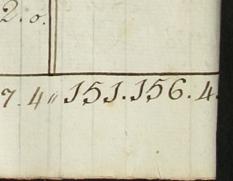 2.0.
7.4 〃 151.156.4.